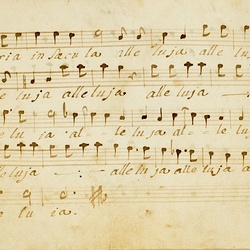 ria in sæcula alle luja alle lu
le luja alleluja alle luja
le lu ja al- le luja al- le lu
luja alle luja alle luja a
le lu ja.